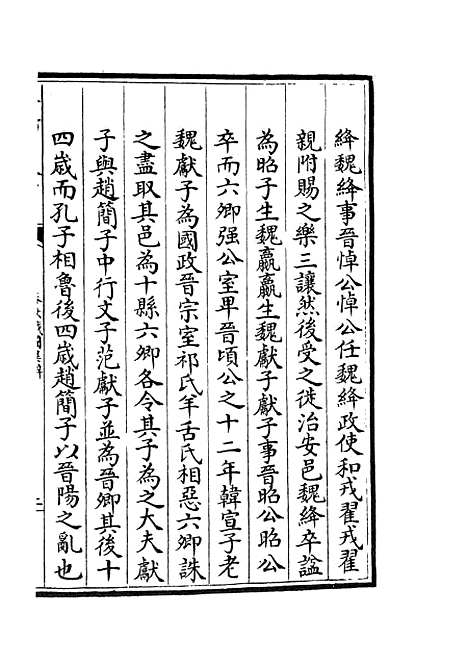 絳魏絳事晉悼公悼公任魏絳政使和戎翟戎翟
親附賜之樂三讓然後受之徙治安邑魏絳卒諡
為昭子生魏嬴嬴生魏獻子獻子事晉昭公昭公
卒而六卿强公室卑晉頃公之十二年韓宣子老
魏獻子為國政晉宗室祁氏羊舌氏相惡六卿誅
之盡取其邑為十縣六卿各令其子為之大夫獻
子與趙簡子中行文子范獻子並為晉卿其後十
四嵗而孔子相魯後四嵗趙簡子以晉陽之亂也